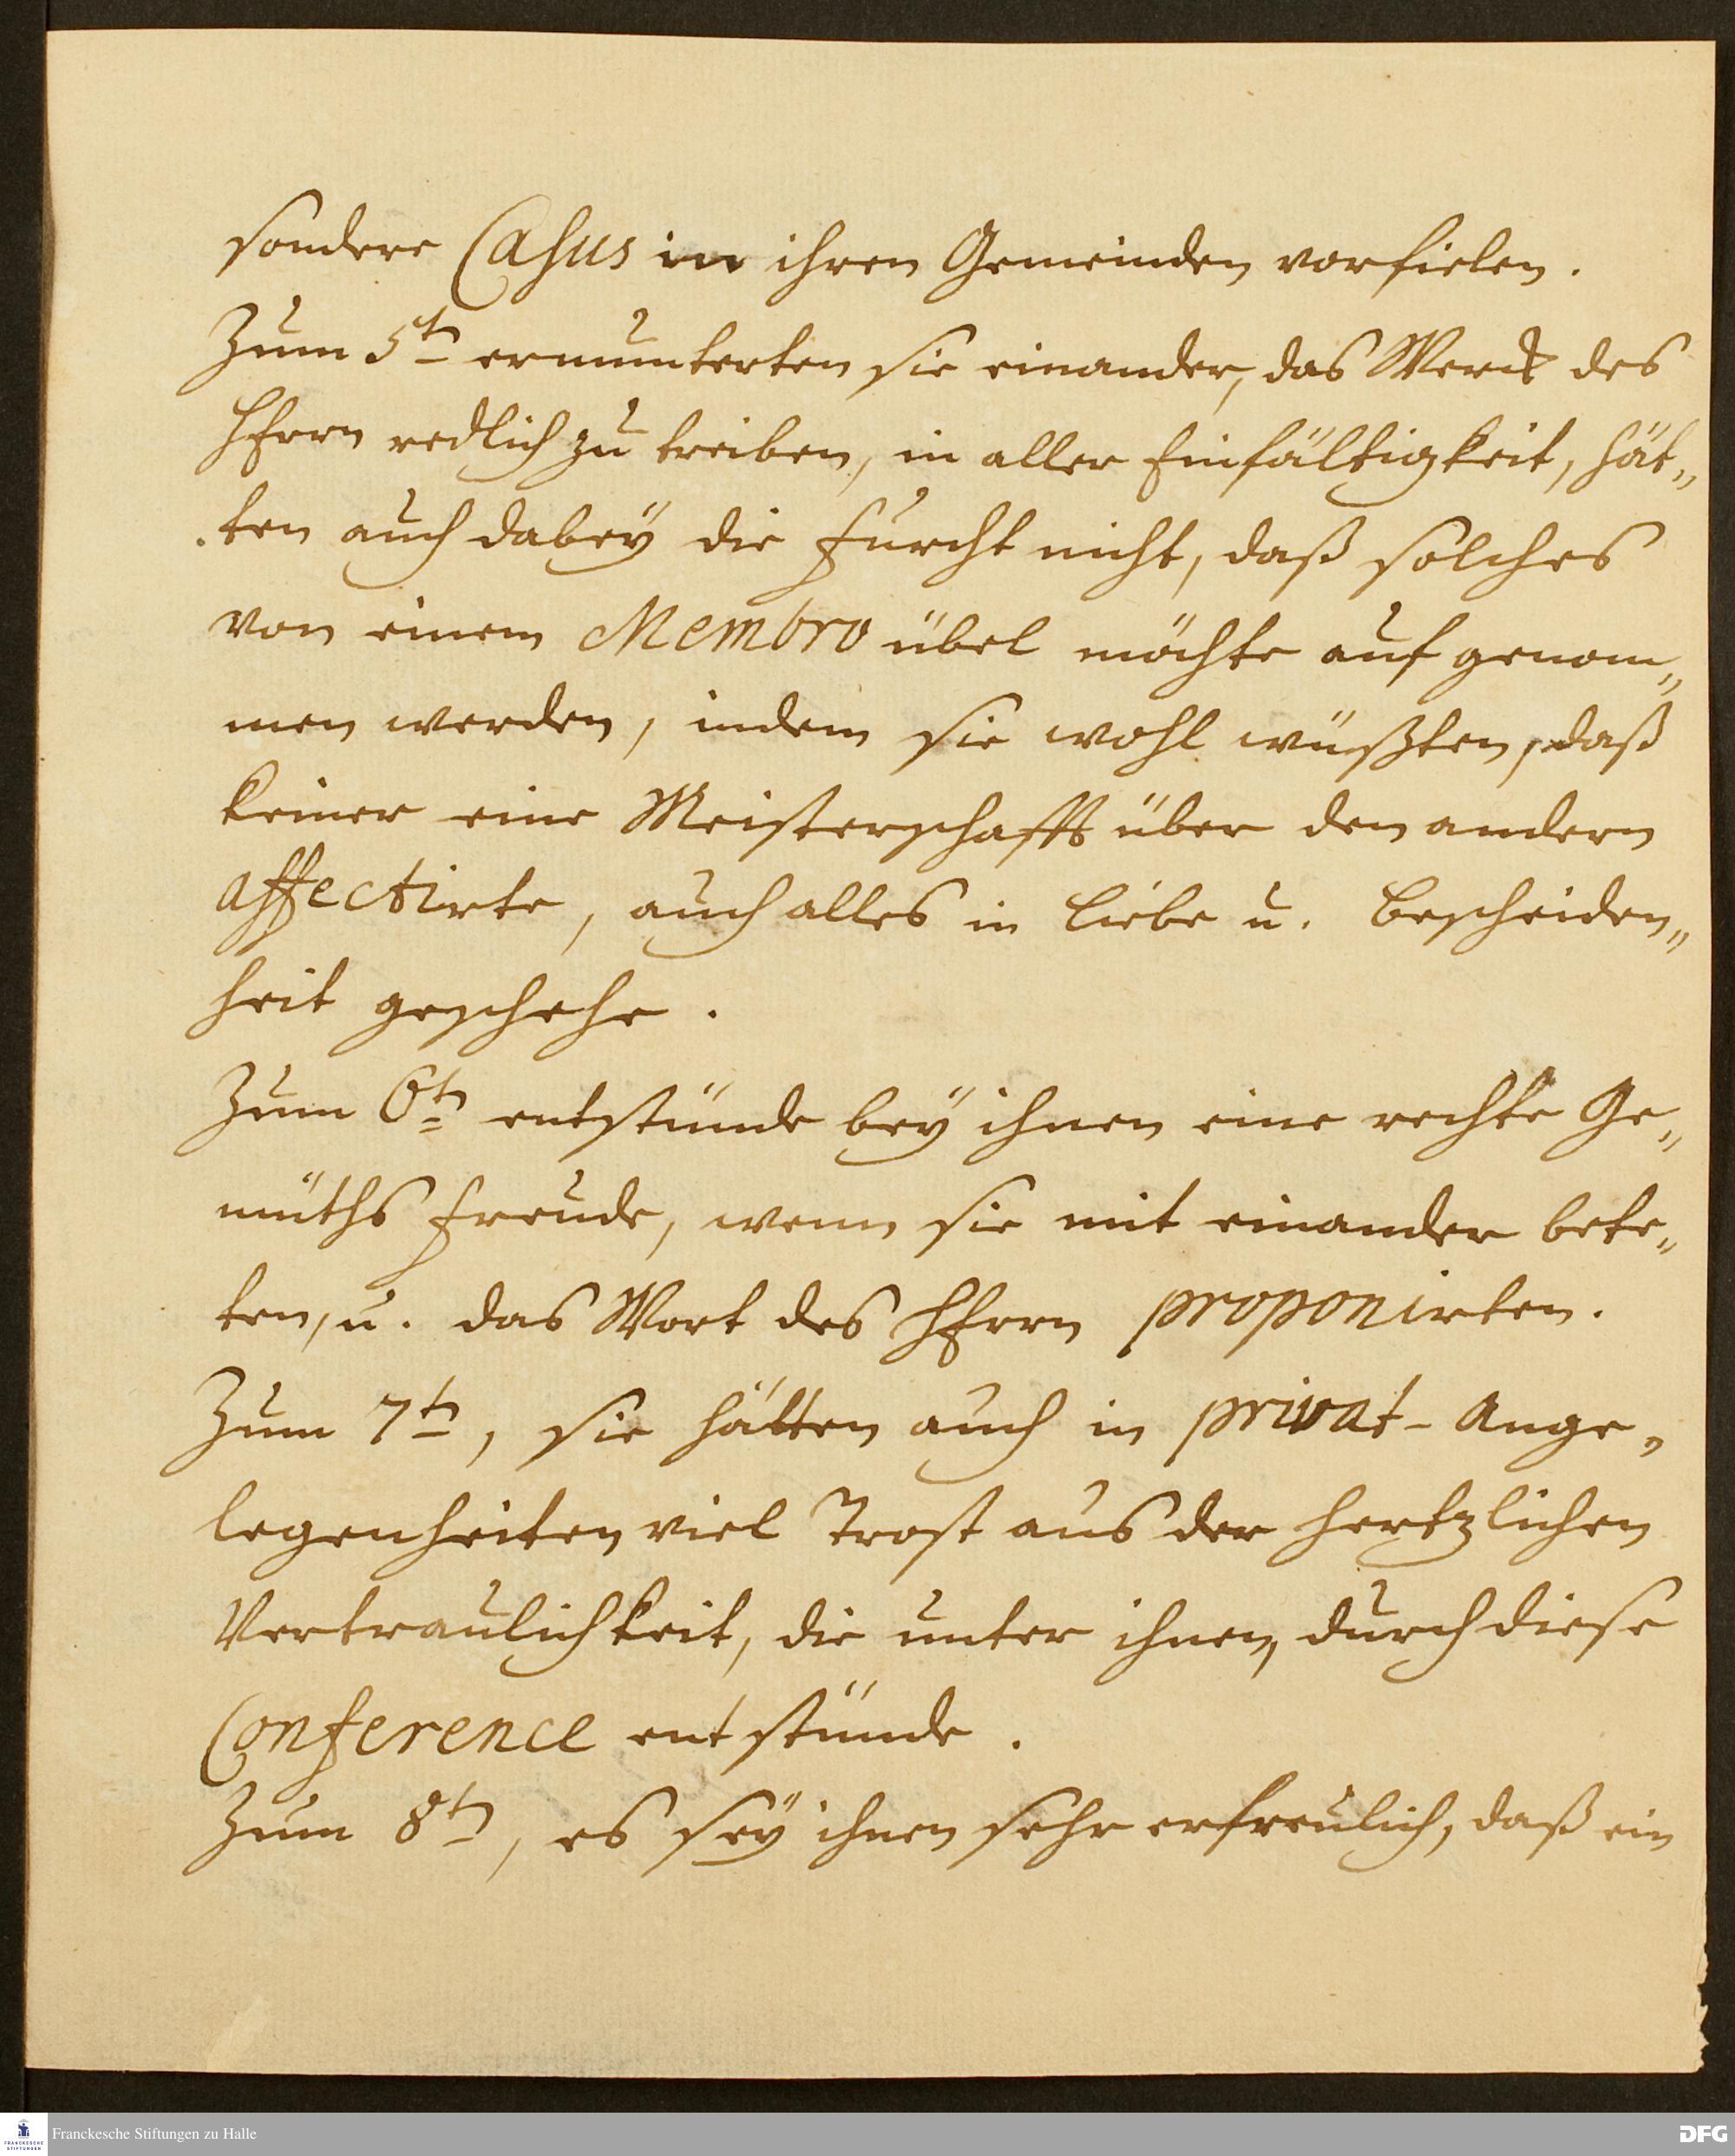 sondere Casus in ihren Gemeinden vorfielen.
Zum 5ten ermunterten sie einander, das Werck des
HErrn redlich zu treiben, in aller Einfältigkeit, hät„
ten auch dabeÿ die Furcht nicht, daß solches
von einem Membro übel möchte auf genom„
men werden, indem sie wohl wüßten, daß
keiner eine Meisterschafft über den andern
affectirte, auch alles in Liebe u. Bescheiden„
heit geschehe.
Zum 6ten entstünde beÿ ihnen eine rechte Ge„
müths Freude, wenn sie mit einander bete„
ten, u. das Wort des HErrn proponirten.
Zum 7ten, sie hätten auch in privat-Ange„
legenheiten viel Trost aus der hertzlichen
Vertraulichkeit, die unter ihnen, durch diese
Conference entstünde.
Zum 8ten, es seÿ ihnen sehr erfreulich, daß ein
FRANCKESCHE STIFTUNGEN
Franckesche Stiftungen zu Halle
DFG